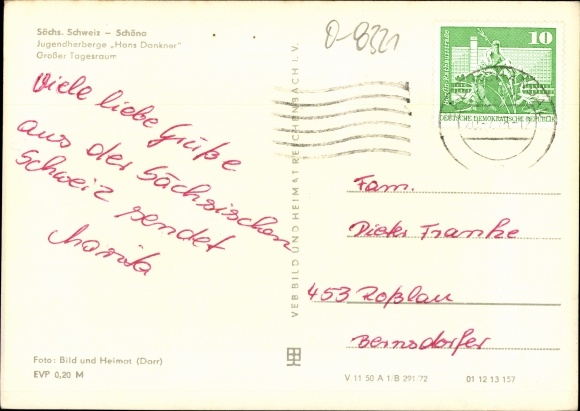 Sächs. Schweiz – Schöna
Jugendherberge „Hans Dankner"
Großer Tagesraum
0-8321
10
Berlin, Rathausstraße
DEUTSCHE DEMOKRATISCHE REPUBLIK
Viele liebe Grüße
aus der Sächsischen
Schweiz sendet
Marita
VEB BILD UND HEIMAT REICHENBACH I. V.
Fam.
Dieter Franke
453 Roßlau
Bernsdorfer
Foto: Bild und Heimat (Darr)
EVP 0,20 M
V 11 50 A 1/B 291/72
01 12 13 157